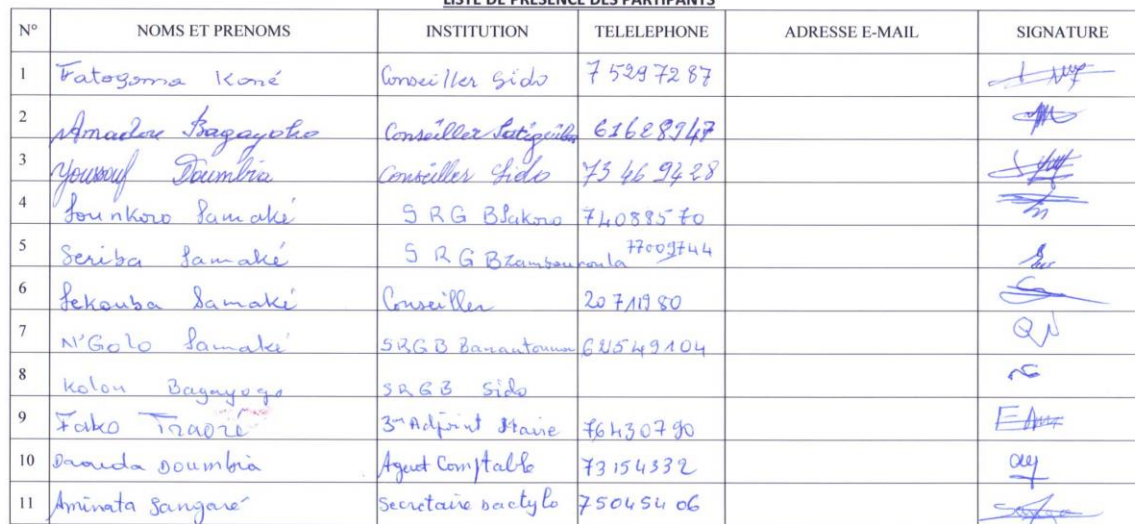 LISTE DE PRESENCE DES PARTIPANTS
N° NOMS ET PRENOMS INSTITUTION TELELEPHONE ADRESSE E-MAIL SIGNATURE
1 Fatogoma Koné Conseiller Sido 75297287
2 Amadou Bagayoko Conseiller 61628947
3 Youssouf Doumbia Conseiller Sido 73469428
4 Sounkoro Samaké SRG BSakoro 74088570
5 Seriba Samaké SRGB 77009744
6 Sekouba Samaké Conseiller 20711980
7 N'Golo Samaké SRGB
8 Kolon Bagayogo SRGB Sido
9 Fako Traoré 3me Adjoint Maire 76430790
10 Daouda Doumbia Agent Comptable 73154332
11 Aminata Sangaré Secretaire dactylo 75045406